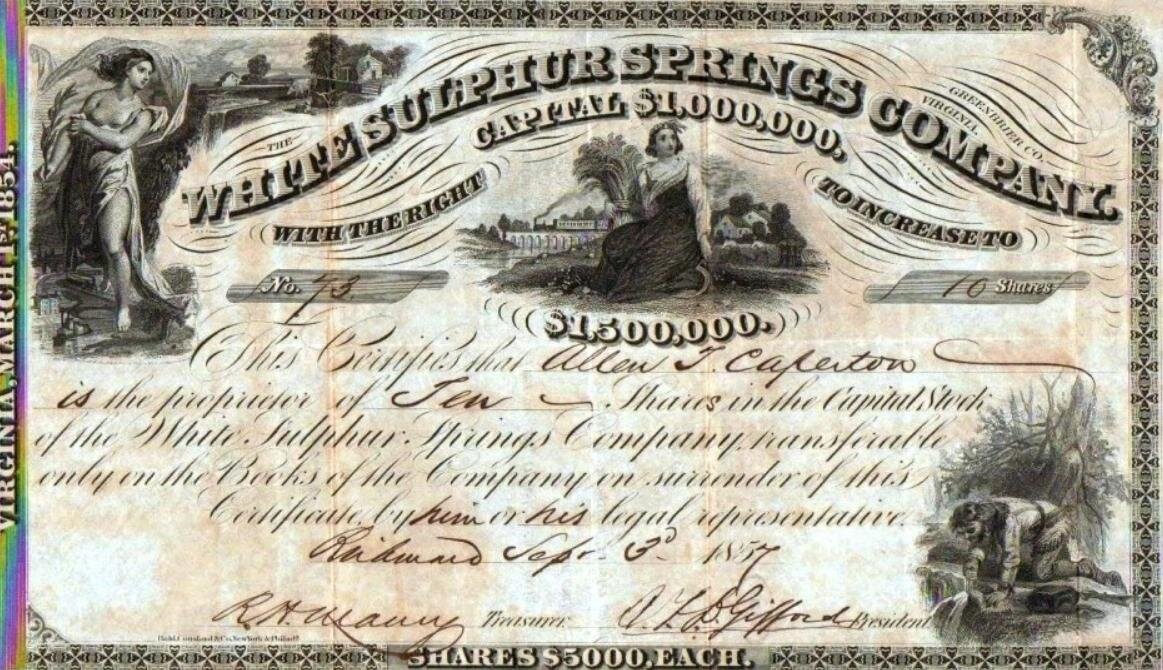 THE
WHITE SULPHUR SPRINGS COMPANY.
GREENBRIER CO.
VIRGINIA.
CAPITAL $1,000,000,
WITH THE RIGHT TO INCREASE TO
No. 73 10 Shares
$1,500,000.
This Certifies that Allen T. Caperton
is the proprietor of Ten Shares in the Capital Stock
of the White Sulphur Springs Company, transferable
only on the Books of the Company on surrender of this
Certificate by him or his legal representative.
Richmond Sept. 3d 1857
R. H. Maury Treasurer. Gifford President
SHARES $5000, EACH.
VIRGINIA, MARCH 1854.